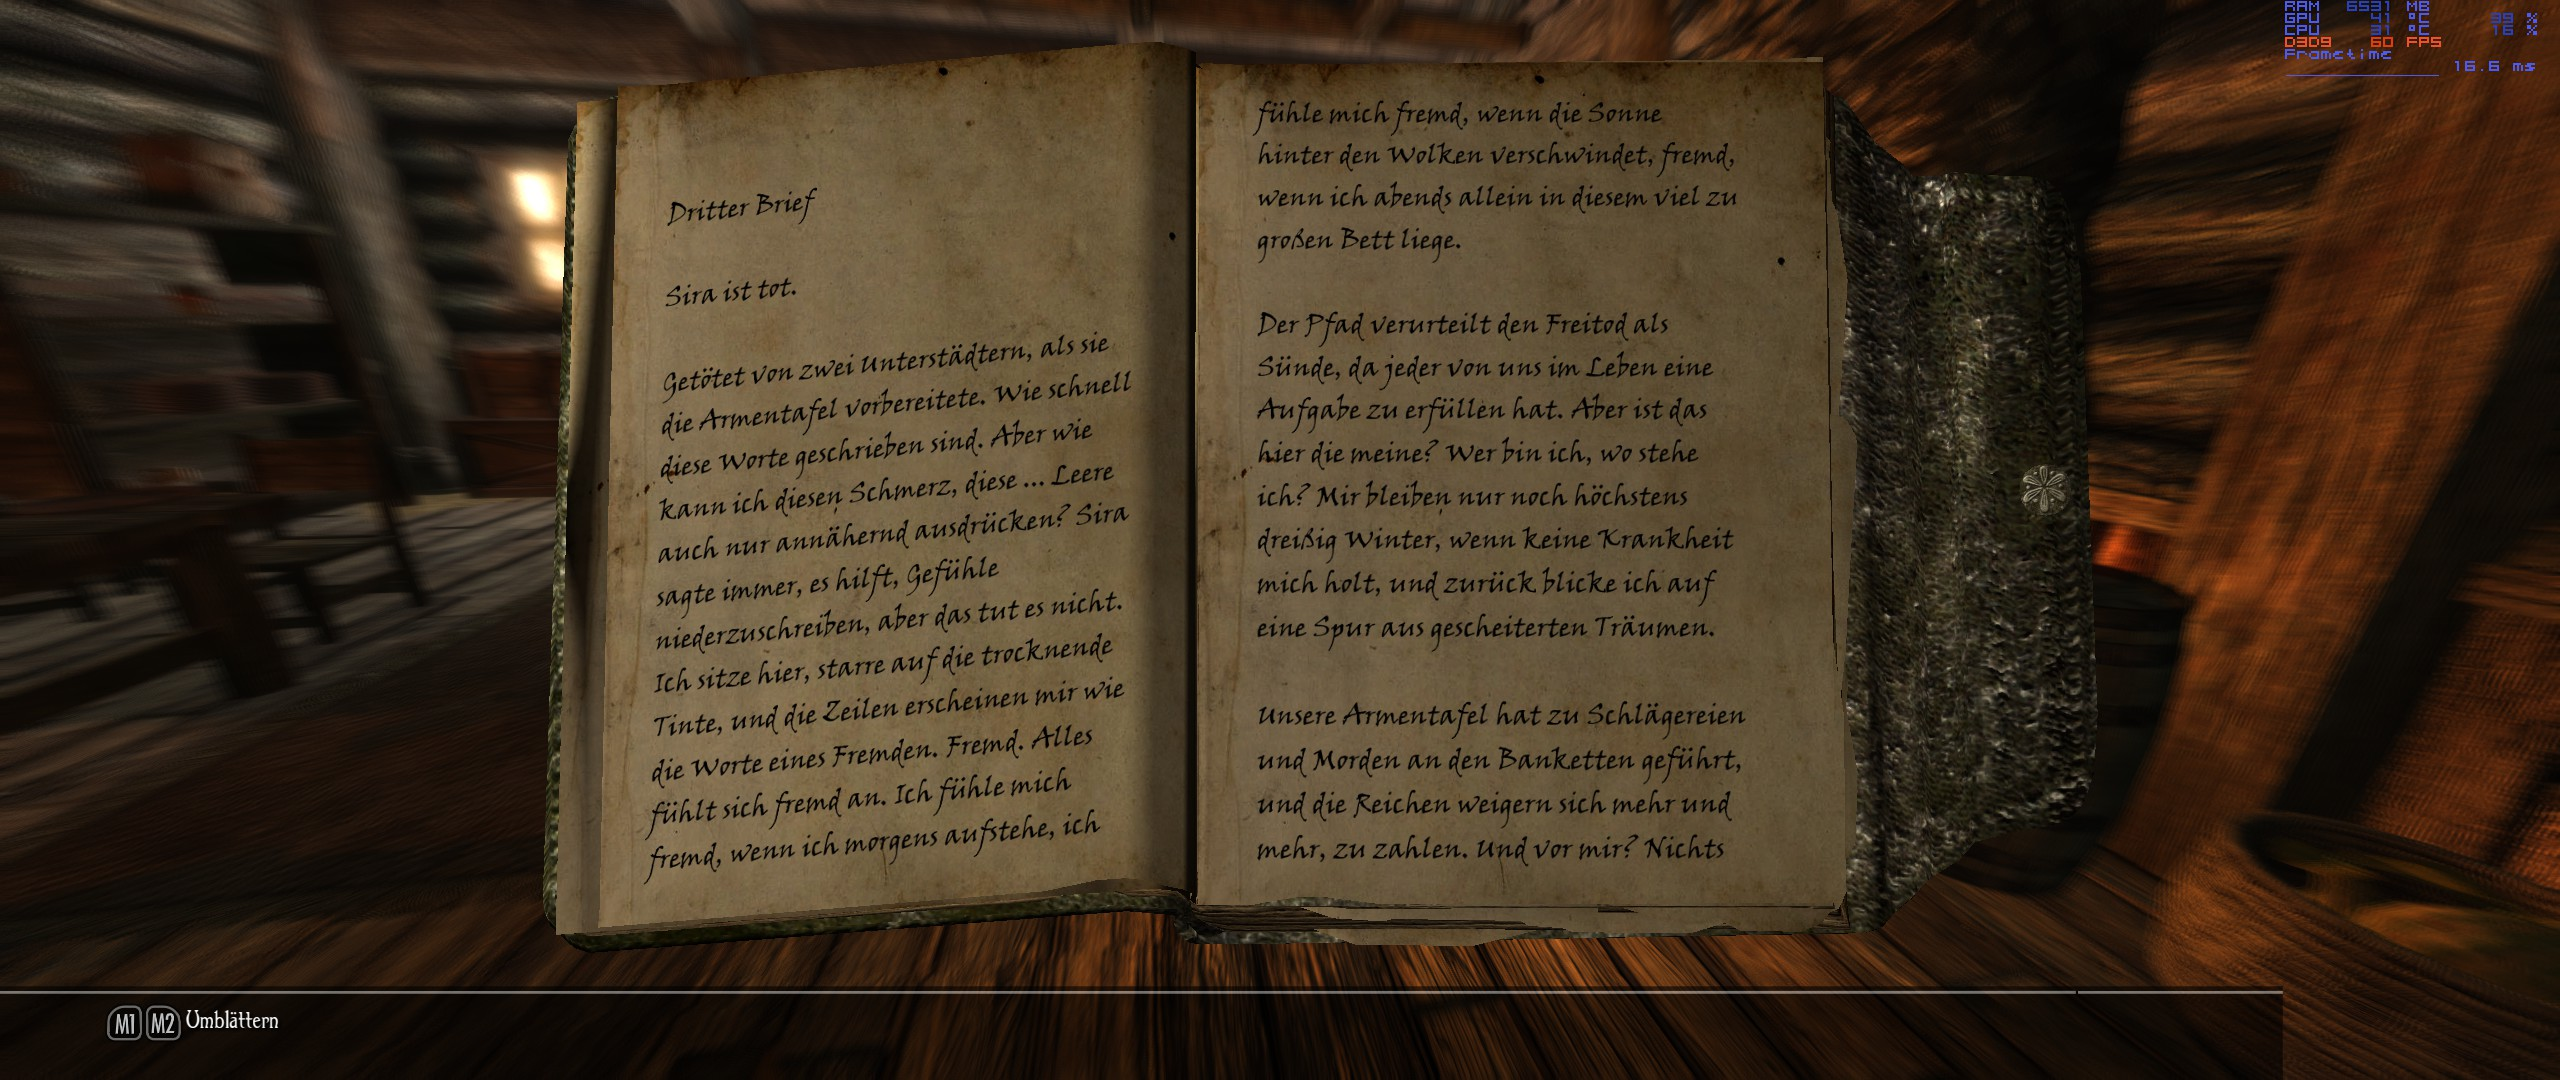 Dritter Brief
Sira ist tot.
Getötet von zwei Unterstädtern, als sie
die Armentafel vorbereitete. Wie schnell
diese Worte geschrieben sind. Aber wie
kann ich diesen Schmerz, diese ... Leere
auch nur annähernd ausdrücken? Sira
sagte immer, es hilft, Gefühle
niederzuschreiben, aber das tut es nicht.
Ich sitze hier, starre auf die trocknende
Tinte, und die Zeilen erscheinen mir wie
die Worte eines Fremden. Fremd. Alles
fühlt sich fremd an. Ich fühle mich
fremd, wenn ich morgens aufstehe, ich
fühle mich fremd, wenn die Sonne
hinter den Wolken verschwindet, fremd,
wenn ich abends allein in diesem viel zu
großen Bett liege.
Der Pfad verurteilt den Freitod als
Sünde, da jeder von uns im Leben eine
Aufgabe zu erfüllen hat. Aber ist das
hier die meine? Wer bin ich, wo stehe
ich? Mir bleiben nur noch höchstens
dreißig Winter, wenn keine Krankheit
mich holt, und zurück blicke ich auf
eine Spur aus gescheiterten Träumen.
Unsere Armentafel hat zu Schlägereien
und Morden an den Banketten geführt,
und die Reichen weigern sich mehr und
mehr, zu zahlen. Und vor mir? Nichts
RAM 6531 MB
GPU 41 °C 99 %
CPU 31 °C 16 %
D3D9 60 FPS
Frametime
16.6 ms
M1 M2 Umblättern